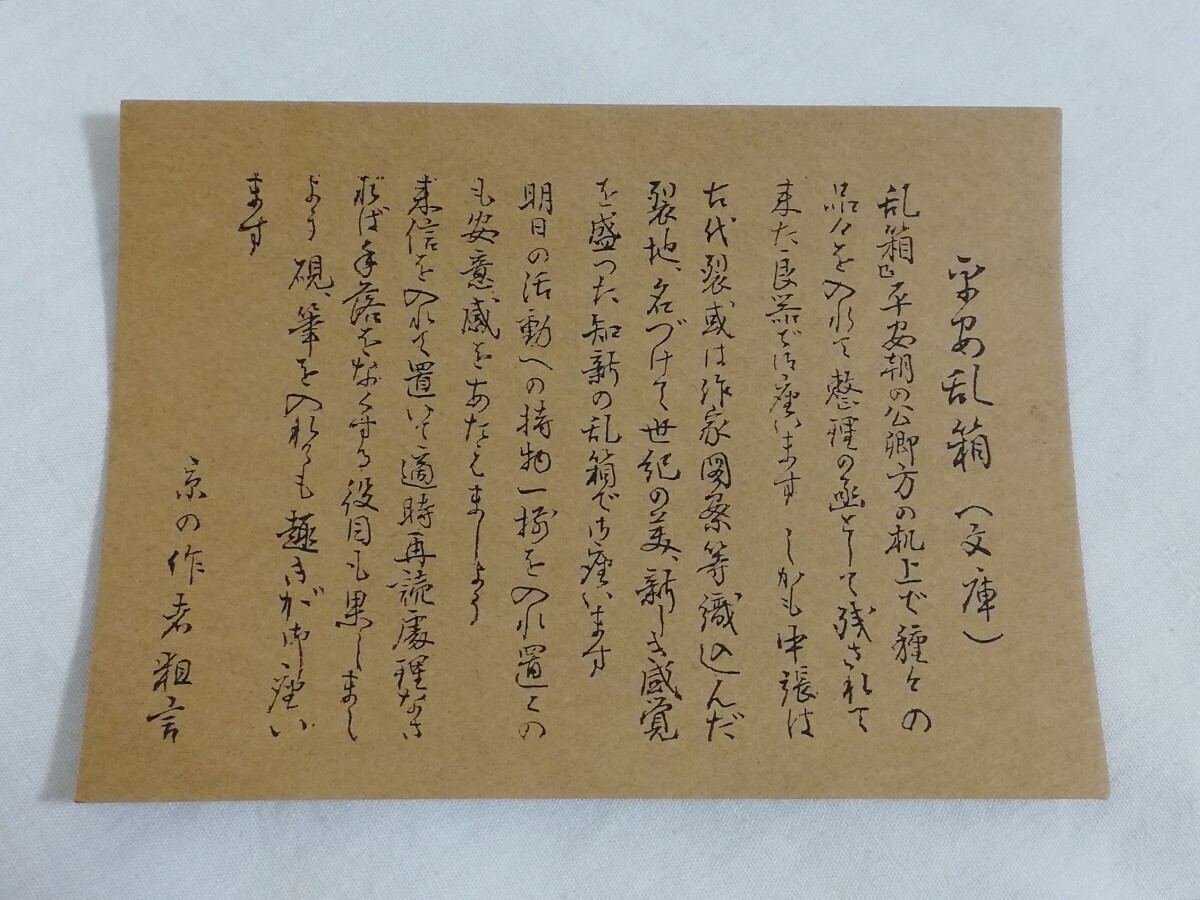 平安乱箱(文庫)
乱箱は平安朝の公卿方の机上で種々の
品々を入れて整理の函として残されて
来た良器で御座います しかも中張は
古代裂或は作家図案等織込んだ
裂地、名づけて世紀の美、新しき感覚
を盛つた知新の乱箱で御座います
明日の活動への持物一揃を入れ置くの
も安意感をあたえましよう
来信を入れて置いて適時再読處理なさ
れば手落をなくする役目も果しまし
よう 硯、筆を入れるも趣きが御座い
ます
京の作者粗言